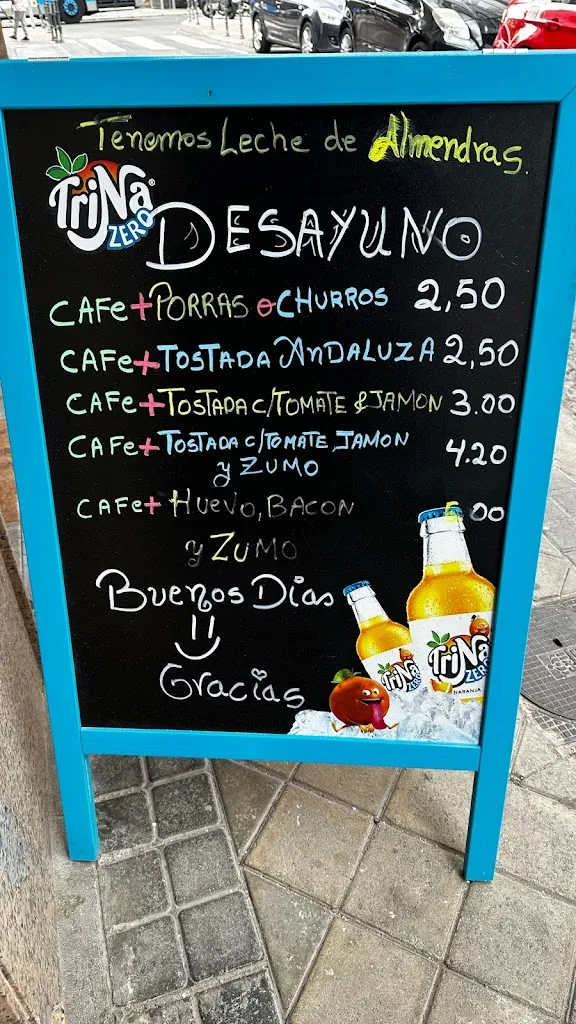 Tenemos Leche de Almendras.
TRiNa®
ZERO
DESAYUNO
CAFe + PORRAS o CHURROS 2,50
CAFe + TOSTADA ANDALUZA 2,50
CAFe + TOSTADA C/TOMATE & JAMON 3.00
CAFe + TOSTADA C/TOMATE JAMON 4.20
y ZUMO
CAFe + HUEVO, BACON 5.00
y ZUMO
Buenos Dias
Gracias
TRiNa
ZERO
TRiNa
ZERO
NARANJA